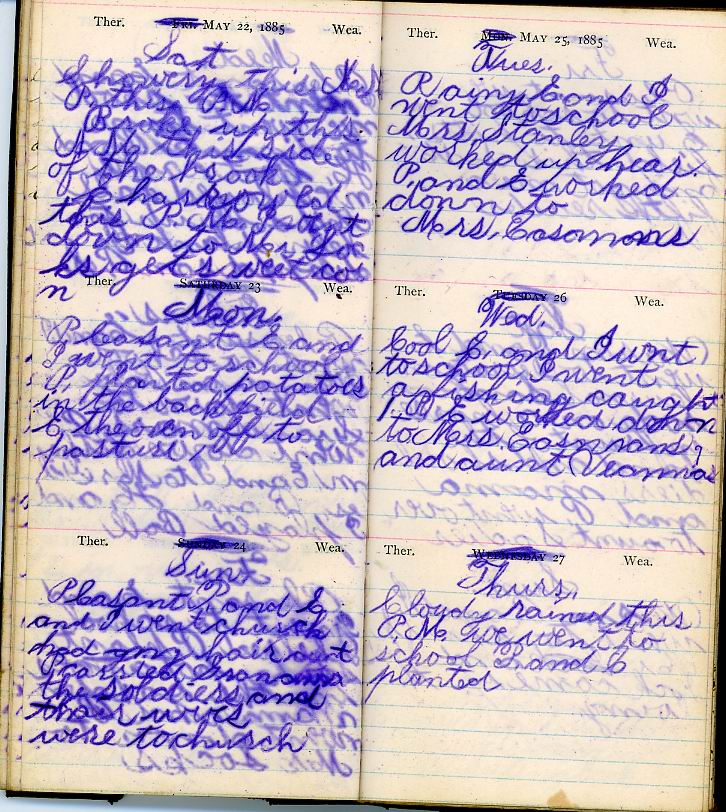 Ther. FRI. MAY 22, 1885 Wea.
Sat
Showery this
P. this P.M.
up this
this side
of the book
E harrowed
this P.M. I went
down to Mrs
get sweet cor
n
Ther. SATURDAY 23 Wea.
Mon.
Pleasant E and
I went to school
P. planted potatoes
in the back field
E the oxen off to
pasture
Ther. SUNDAY 24 Wea.
Sun
Pleasant P. and E
and I went church
had my hair cut
P carried
the soldiers and
thair wives
were to church
Ther. MON. MAY 25, 1885 Wea.
Tues.
Rainy E and I
went to school
Mrs Stanley
worked up hear.
P. and E worked
down to
Mrs. Easmans
Ther. TUESDAY 26 Wea.
Wed.
Cool E. and I wnt
to school I went
fishing caught
P. & E worked down
to Mrs. Easmans,
and aunt Veannas
Ther. WEDNESDAY 27 Wea.
Thurs.
Cloudy rained this
P.M. we went to
school P. and E
planted